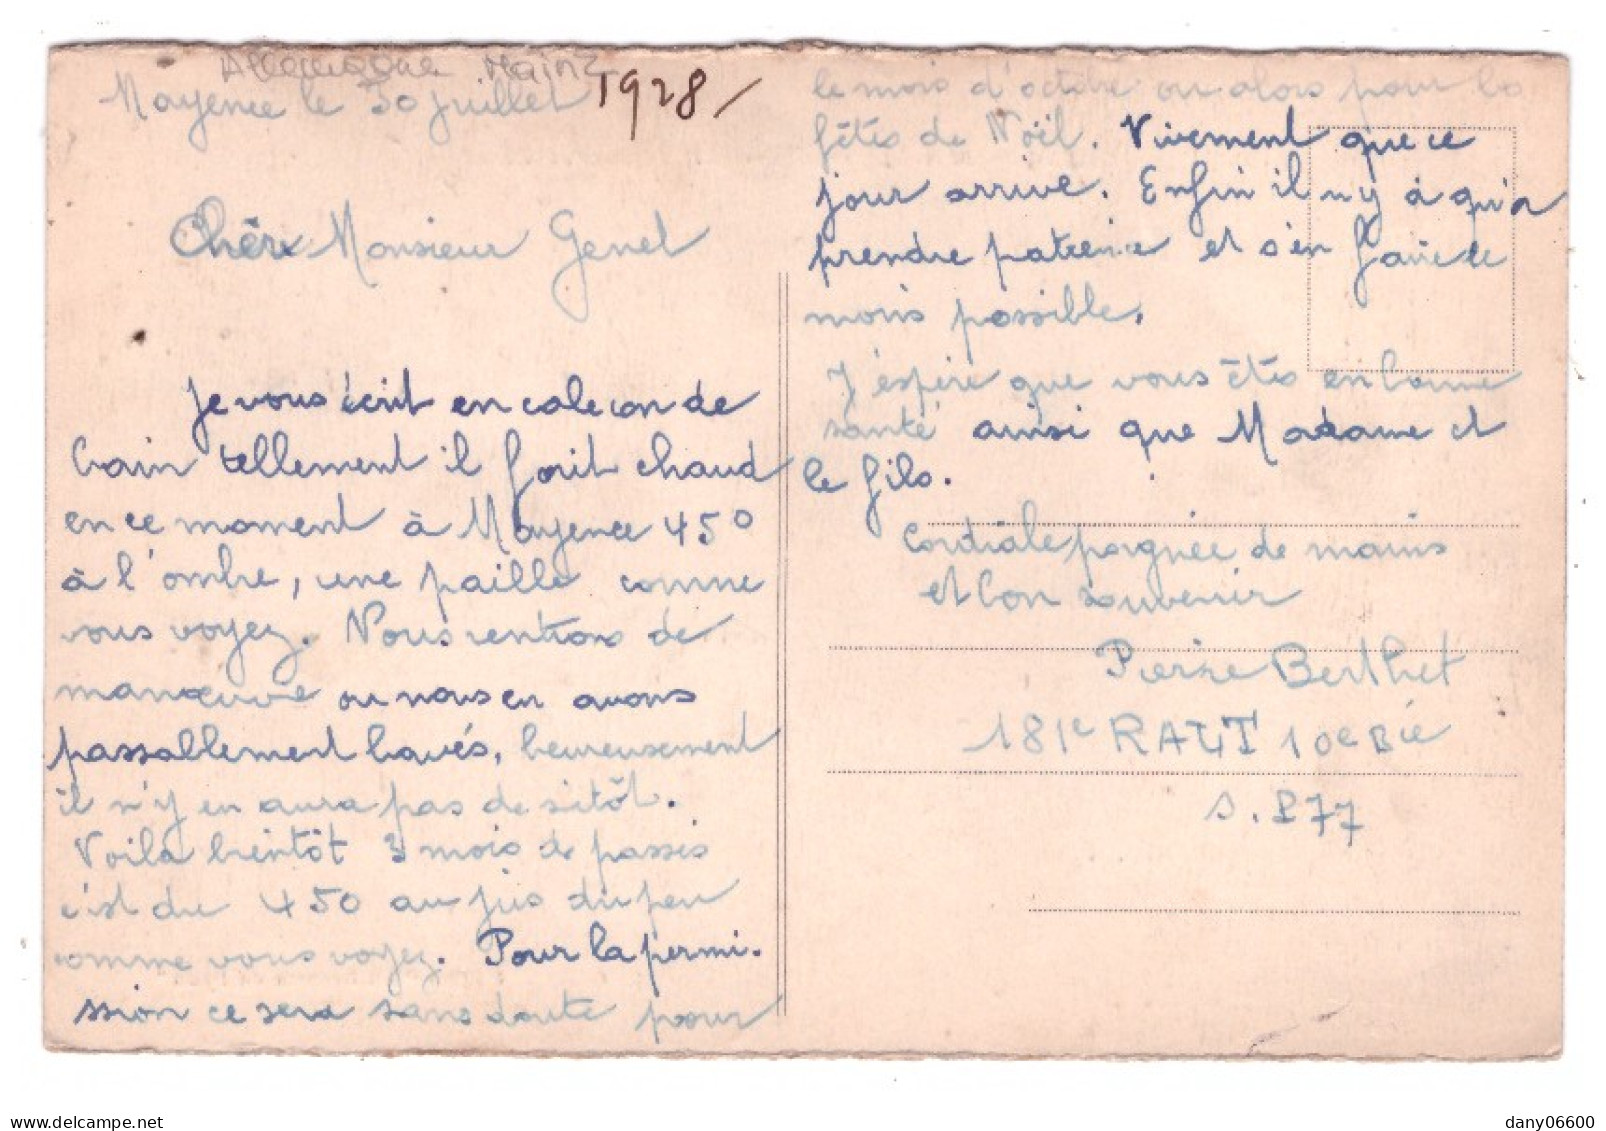 Allemagne Mainz
Mayence le 30 juillet 1928
Chère Monsieur Genet
Je vous écrit en caleçon de
bain tellement il fait chaud
en ce moment à Mayence 45°
à l'ombre, une paille comme
vous voyez. Nous rentrons de
manœuvre ou nous en avons
passablement bavés, heureusement
il n'y en aura pas de sitôt.
Voila bientôt 3 mois de passés
c'est du 450 au jus du peu
comme vous voyez. Pour la permi-
ssion ce sera sans doute pour
le mois d'octobre ou alors pour les
fêtes de Noël. Vivement que ce
jour arrive. Enfin il n'y à qu'a
prendre patience et s'en faire le
moins possible.
J'éspère que vous êtes en bonne
santé ainsi que Madame et
le fils.
Cordiale poignée de mains
et bon souvenir
Pierre Berthet
181e RALT 10e Bie
S.P 77
delcampe.net
dany06600